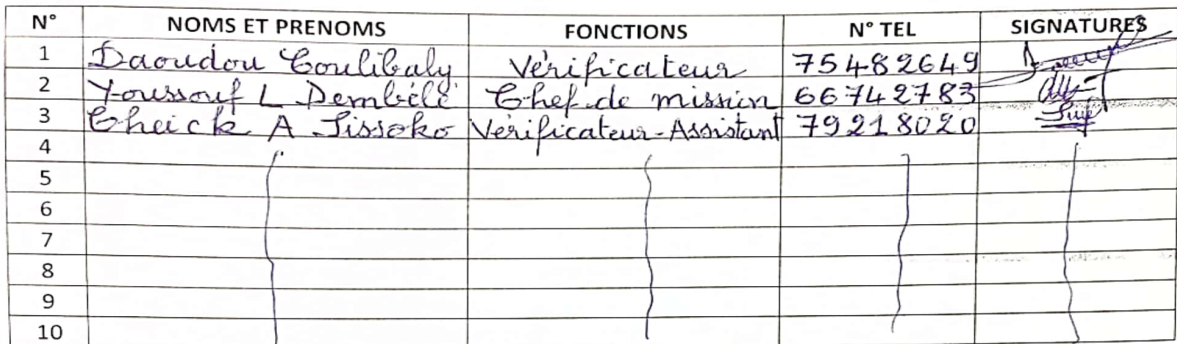 N° NOMS ET PRENOMS FONCTIONS N° TEL SIGNATURES
1 Daoudou Coulibaly Vérificateur 75482649
2 Youssouf L Dembélé Chef de mission 66742783
3 Cheick A Sissoko Vérificateur-Assistant 79218020
4
5
6
7
8
9
10